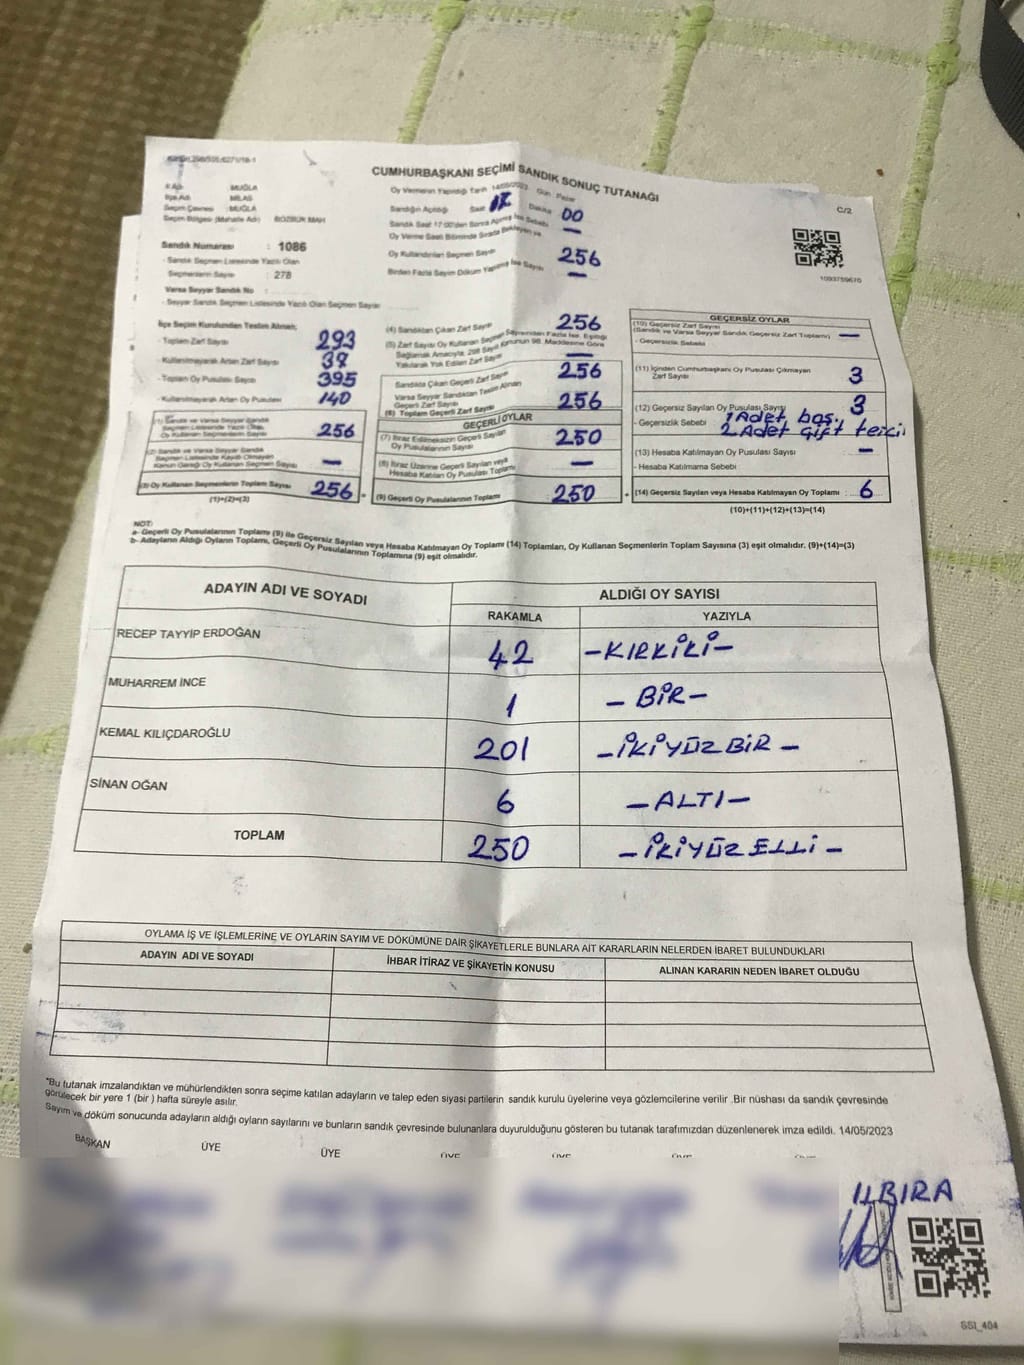 CUMHURBAŞKANI SEÇİMİ SANDIK SONUÇ TUTANAĞI
C/2
İl Adı MUĞLA
İlçe Adı MİLAS
Seçim Çevresi MUĞLA
Seçim Bölgesi (Mahalle Adı) BOZBÜK MAH
Sandık Numarası : 1086
- Sandık Seçmen Listesinde Yazılı Olan
Seçmenlerin Sayısı : 278
Varsa Seyyar Sandık No :
- Seyyar Sandık Seçmen Listesinde Yazılı Olan Seçmen Sayısı
Oy Vermenin Yapıldığı Tarih 14/05/2023 Gün : Pazar
Sandığın Açıldığı Saat 17 Dakika 00
Sandık Saat 17:00'den Sonra Açılmış İse Sebebi —
Oy Verme Saati Bitiminde Sırada Bekleyen ve
Oy Kullandırılan Seçmen Sayısı 256
Birden Fazla Sayım Döküm Yapılmış İse Sayısı —
1093759670
İlçe Seçim Kurulundan Teslim Alınan;
- Toplam Zarf Sayısı 293
- Kullanılmayarak Artan Zarf Sayısı
- Toplam Oy Pusulası Sayısı 395
- Kullanılmayarak Artan Oy Pusulası 140
(1) Sandık ve Varsa Seyyar Sandık
Seçmen Listesinde Yazılı Olan
Oy Kullanan Seçmen Sayısı 256
(2) Sandık ve Varsa Seyyar Sandık
Seçmen Listesinde Kayıtlı Olmayan
Kanun Gereği Oy Kullanan Seçmen Sayısı —
(3) Oy Kullanan Seçmenlerin Toplam Sayısı 256
(1)+(2)=(3)
(4) Sandıktan Çıkan Zarf Sayısı 256
(5) Zarf Sayısı Oy Kullanan Seçmen Sayısından Fazla İse, Eşitliği
Sağlamak Amacıyla, 298 Sayılı Kanunun 98. Maddesine Göre
Yakılarak Yok Edilen Zarf Sayısı —
Sandıkta Çıkan Geçerli Zarf Sayısı 256
Varsa Seyyar Sandıktan Teslim Alınan
Geçerli Zarf Sayısı
(6) Toplam Geçerli Zarf Sayısı 256
GEÇERLİ OYLAR
(7) İtiraz Edilmeksizin Geçerli Sayılan
Oy Pusulalarının Sayısı 250
(8) İtiraz Üzerine Geçerli Sayılan veya
Hesaba Katılan Oy Pusulası Toplamı —
(9) Geçerli Oy Pusulalarının Toplamı 250
GEÇERSİZ OYLAR
(10) Geçersiz Zarf Sayısı
(Sandık ve Varsa Seyyar Sandık Geçersiz Zarf Toplamı) —
- Geçersizlik Sebebi
(11) İçinden Cumhurbaşkanı Oy Pusulası Çıkmayan
Zarf Sayısı 3
(12) Geçersiz Sayılan Oy Pusulası Sayısı 3
- Geçersizlik Sebebi 1 Adet boş.
2 Adet çift tercih
(13) Hesaba Katılmayan Oy Pusulası Sayısı —
- Hesaba Katılmama Sebebi
(14) Geçersiz Sayılan veya Hesaba Katılmayan Oy Toplamı 6
(10)+(11)+(12)+(13)=(14)
NOT:
a- Geçerli Oy Pusulalarının Toplamı (9) ile Geçersiz Sayılan veya Hesaba Katılmayan Oy Toplamı (14) Toplamları, Oy Kullanan Seçmenlerin Toplam Sayısına (3) eşit olmalıdır. (9)+(14)=(3)
b- Adayların Aldığı Oyların Toplamı, Geçerli Oy Pusulalarının Toplamına (9) eşit olmalıdır.
ADAYIN ADI VE SOYADI
ALDIĞI OY SAYISI
RAKAMLA YAZIYLA
RECEP TAYYİP ERDOĞAN 42 –KIRKİKİ–
MUHARREM İNCE 1 – BİR –
KEMAL KILIÇDAROĞLU 201 – İKİYÜZBİR –
SİNAN OĞAN 6 – ALTI –
TOPLAM 250 – İKİYÜZELLİ –
OYLAMA İŞ VE İŞLEMLERİNE VE OYLARIN SAYIM VE DÖKÜMÜNE DAİR ŞİKAYETLERLE BUNLARA AİT KARARLARIN NELERDEN İBARET BULUNDUKLARI
ADAYIN ADI VE SOYADI İHBAR İTİRAZ VE ŞİKAYETİN KONUSU ALINAN KARARIN NEDEN İBARET OLDUĞU
*Bu tutanak imzalandıktan ve mühürlendikten sonra seçime katılan adayların ve talep eden siyasi partilerin sandık kurulu üyelerine veya gözlemcilerine verilir. Bir nüshası da sandık çevresinde
görülecek bir yere 1 (bir ) hafta süreyle asılır.
Sayım ve döküm sonucunda adayların aldığı oyların sayılarını ve bunların sandık çevresinde bulunanlara duyurulduğunu gösteren bu tutanak tarafımızdan düzenlenerek imza edildi. 14/05/2023
BAŞKAN ÜYE ÜYE ÜYE ÜYE ÜYE
ILBIRA
SSI_404